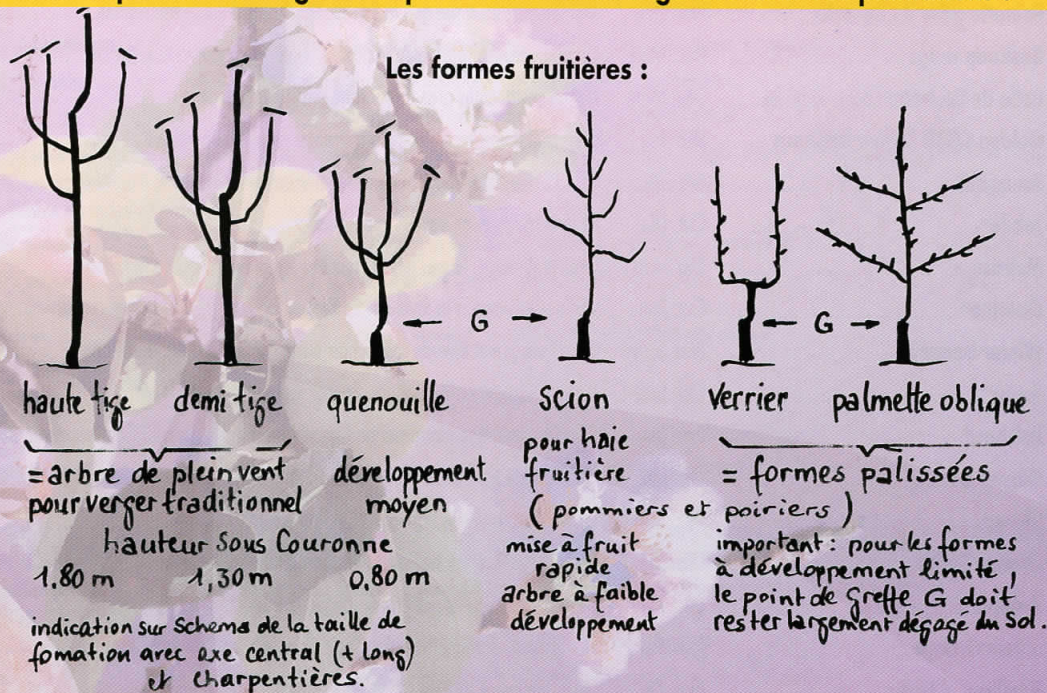 Les formes fruitières :
← G →
← G →
haute tige
demi tige
quenouille
scion
verrier
palmette oblique
= arbre de plein vent
pour verger traditionnel
développement
moyen
hauteur sous couronne
1.80 m
1,30 m
0,80 m
indication sur Schema de la taille de
fomation avec axe central (+ long)
et charpentières.
pour haie
fruitière
( pommiers et poiriers )
mise à fruit
rapide
arbre à faible
développement
= formes palissées
important : pour les formes
à développement limité,
le point de greffe G doit
rester largement dégagé du Sol.